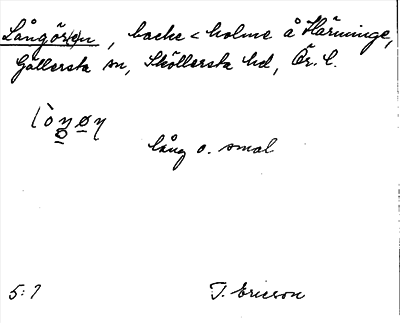 Långör(e)n, backe < holme å Härminge,
Gällersta sn, Sköllersta hd, Ör. l.
lång o. smal
5:7 T. Ericson